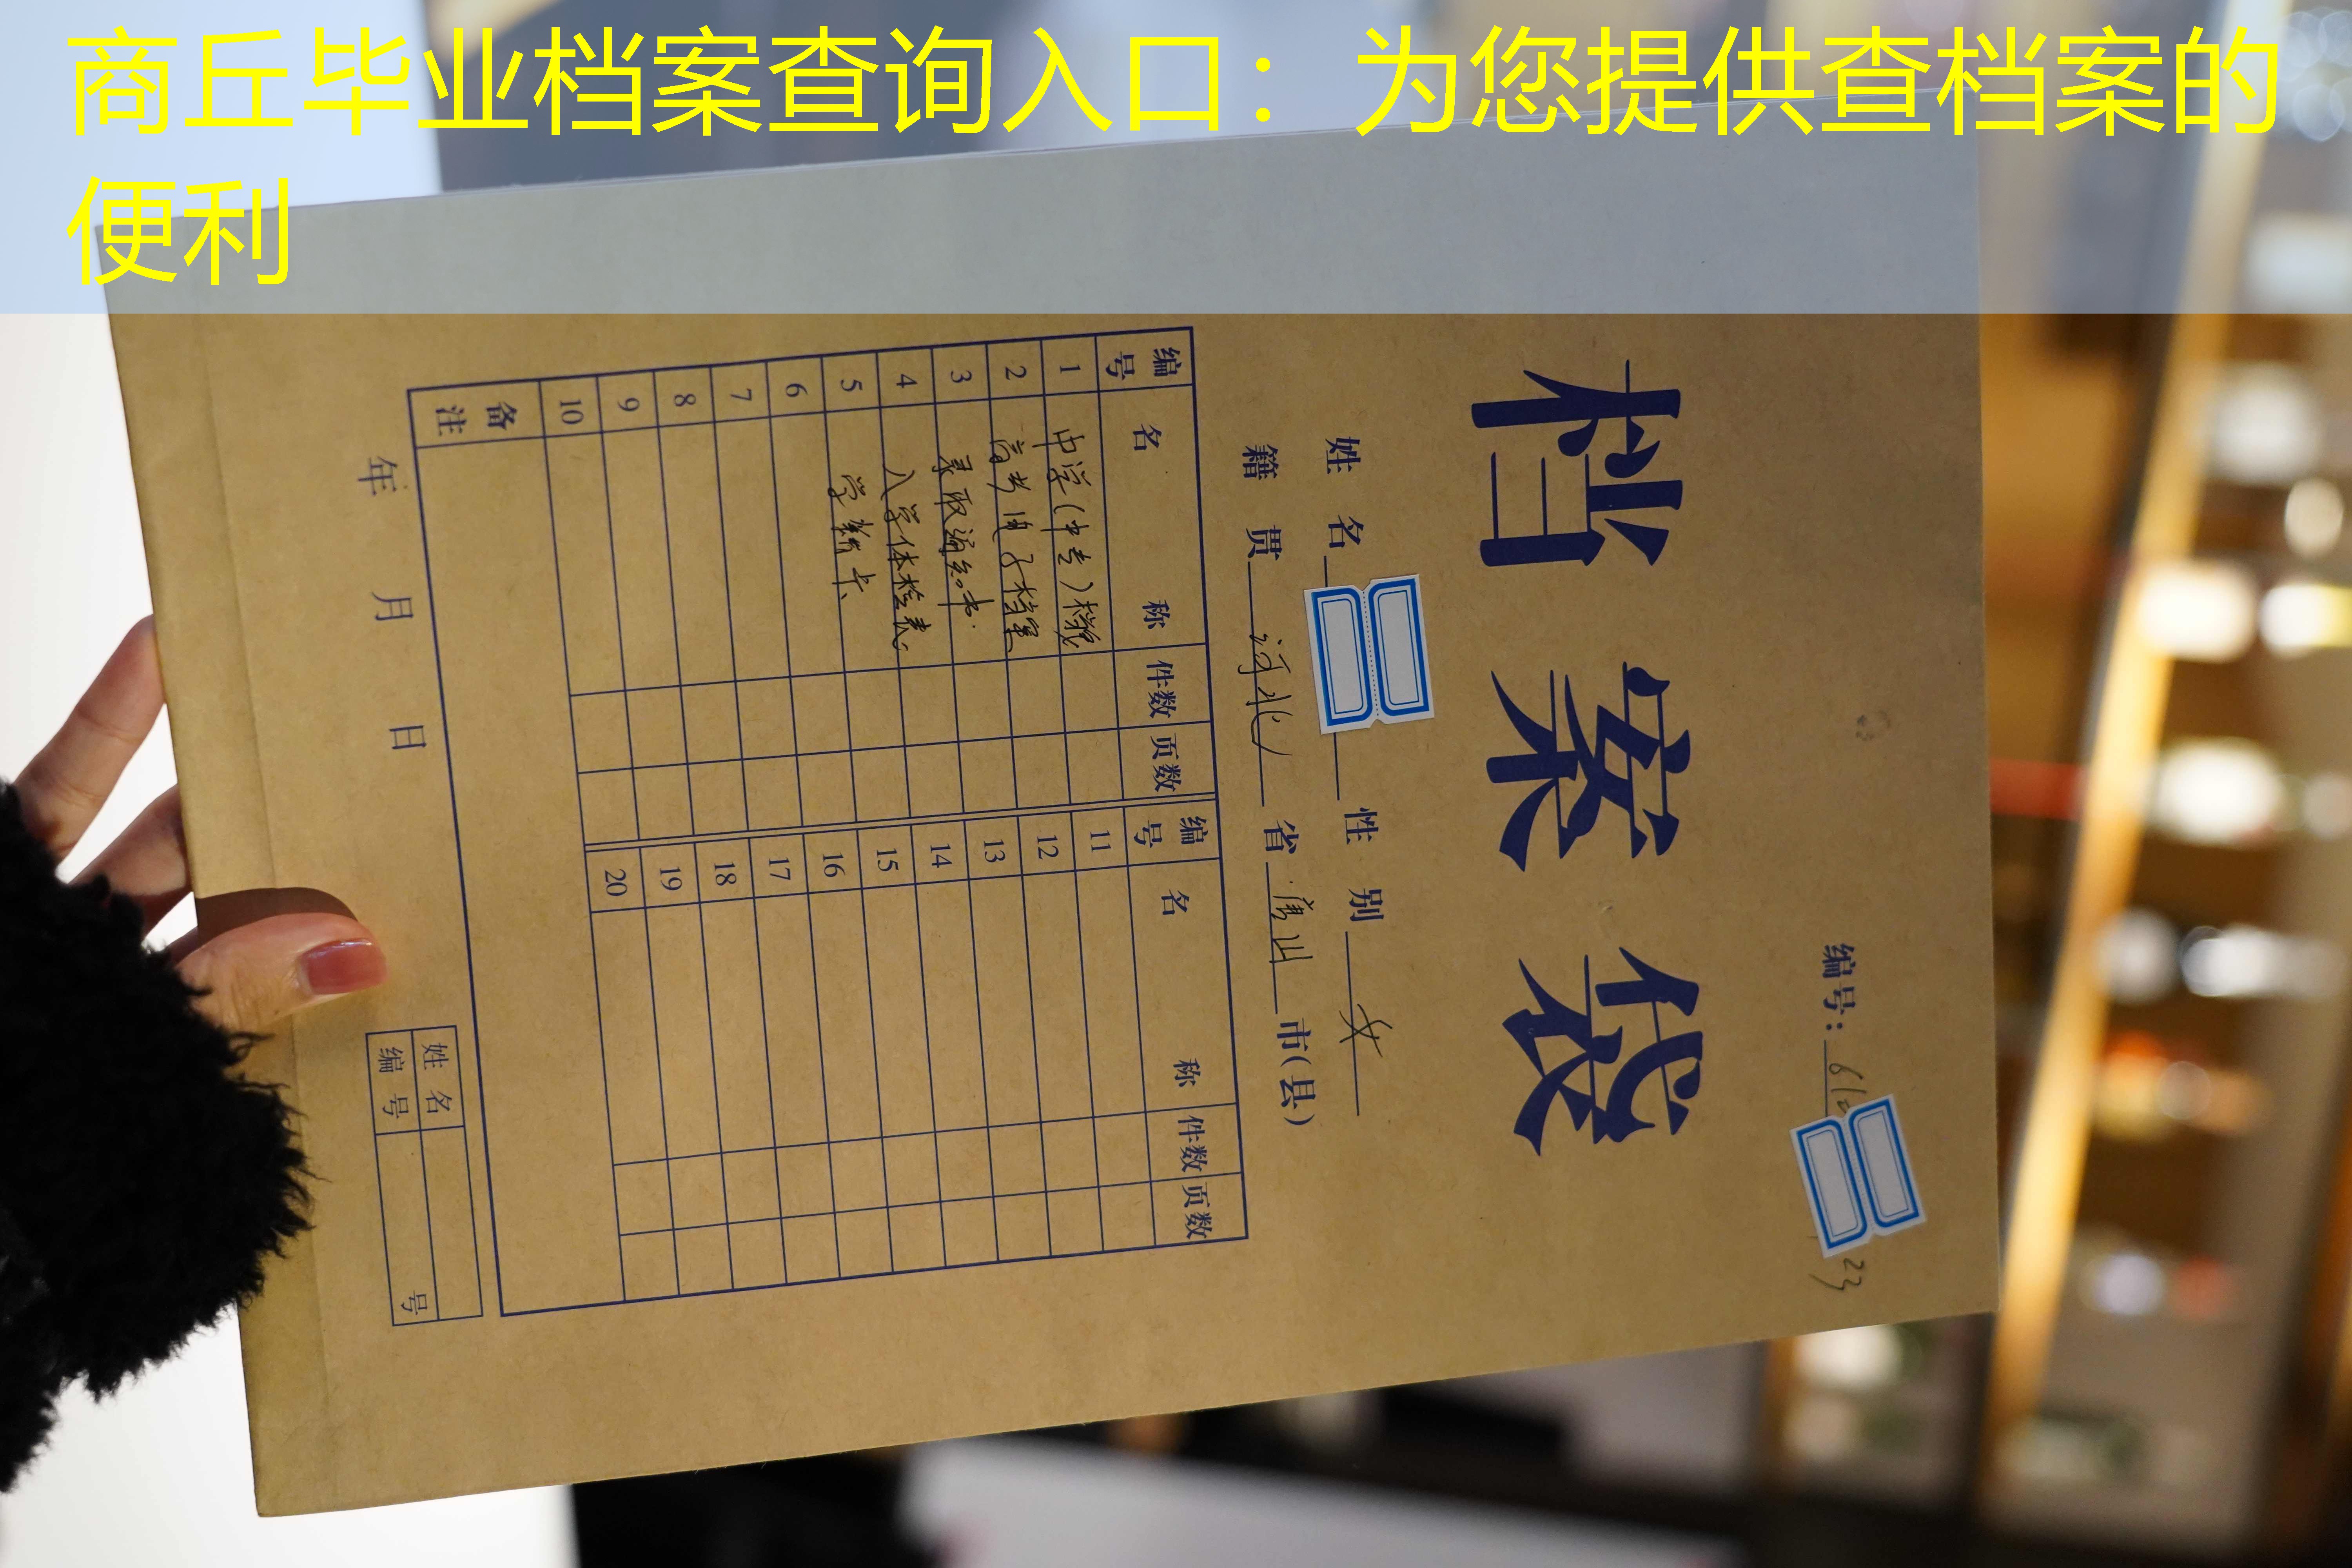 商丘毕业档案查询入口：为您提供查档案的
便利
编号：
档案袋
姓名 性别 女
籍贯 河北 省 唐山 市(县)
编号 名称 件数 页数 编号 名称 件数 页数
1 中学(中专)档案 11
2 高考电子档案 12
3 录取通知书. 13
4 入学体检表 14
5 学籍卡 15
6 16
7 17
8 18
9 19
10 20
备注
年 月 日
姓名
编号 号